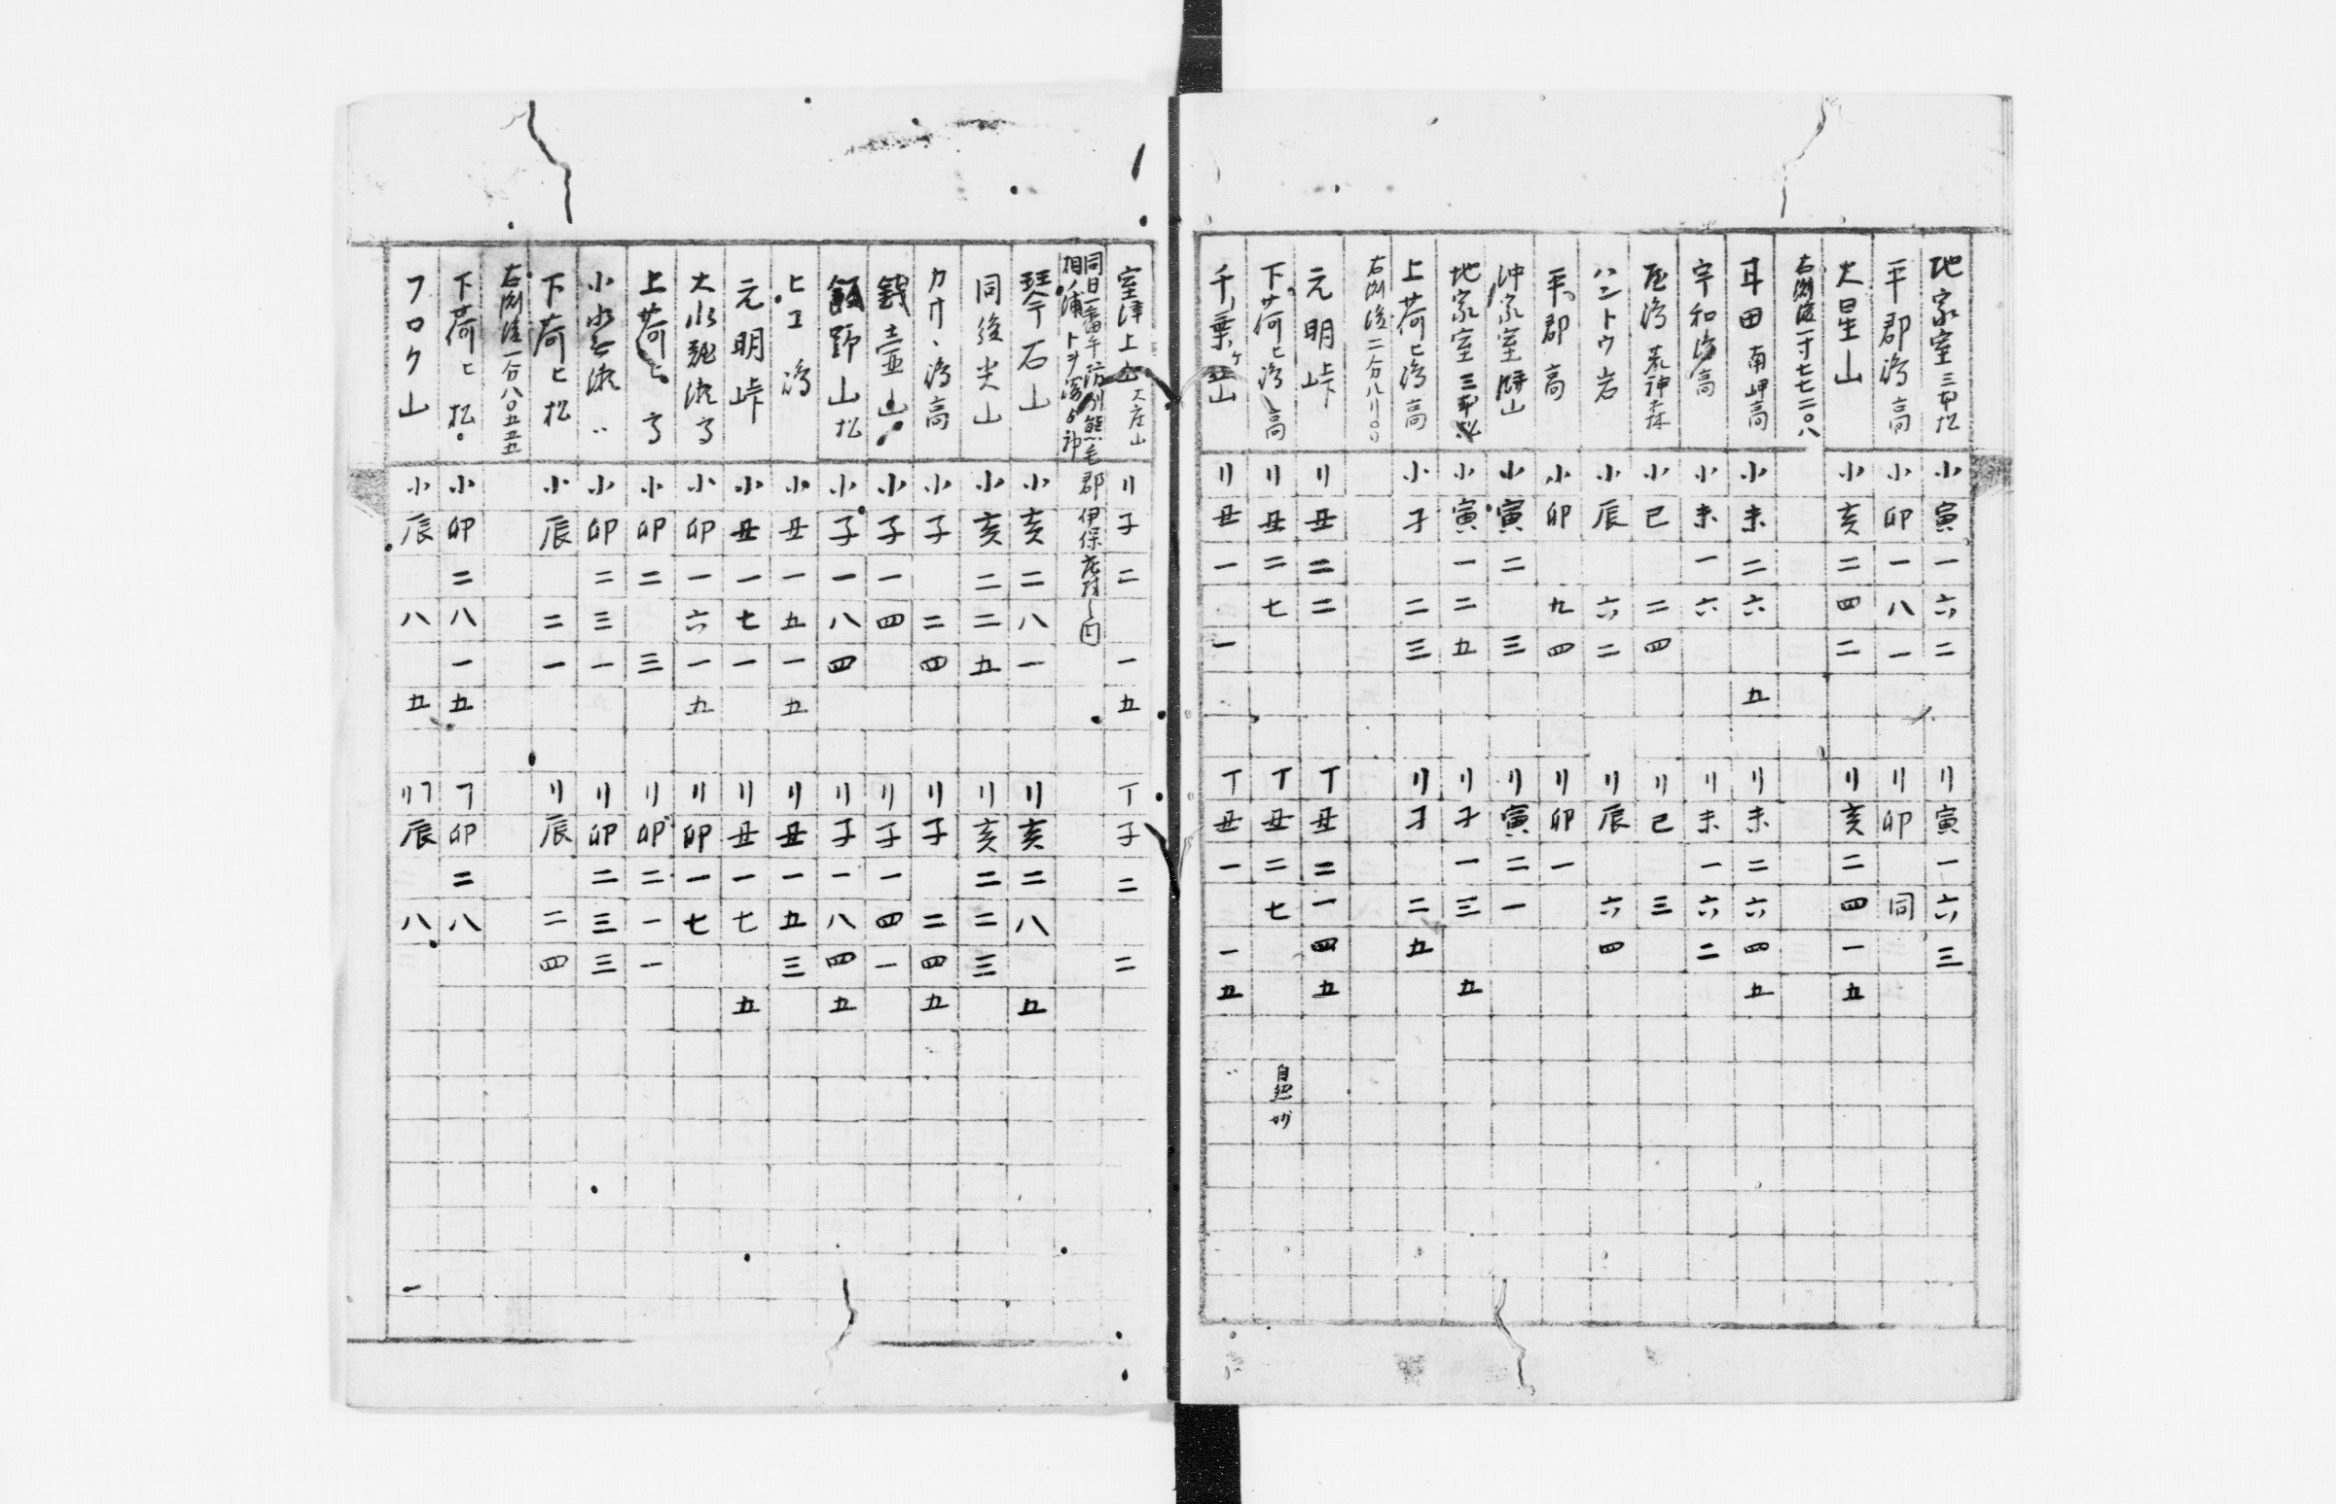 地家室三本松 小寅一六二 リ寅一六三
平郡島高 小卯一八一 リ卯同
大星山 小亥二四二 リ亥二四一五
右測後一寸七七二〇八
耳田南岬高 小未二六五 リ未二六四五
宇和島高 小未一六 リ未一六二
荒神森 小巳二四 リ巳三
ハントウ岩 小辰六二 リ辰六四
平郡高 小卯九四 リ卯一
沖家室 山 小寅二三 リ寅二一
地家室三本松 小寅一二五 リ子一三五
上荷ヒ島高 小子二三 リ子二五
右測後二分八
元明峠 リ丑二二 丁丑二一四五
下荷ヒ島高 リ丑二七 丁丑二七
千葉ケ山 リ丑一一 丁丑一一五
室津上山 リ子二一五 丁子二二
同日 熊毛郡伊保庄村
相ノ浦
琴石山 小亥二八一 リ亥二八五
同後尖山 小亥二二五 リ亥二二三
島高 小子二四 リ子二四五
銭壷山 小子一四 リ子一四一
飯野山松 小子一八四 リ子一八四五
ヒエ島 小丑一五一五 リ丑一五三
元明峠 小丑一七一 リ丑一七五
大水無瀬 小卯一六一五 リ卯一七
上荷ヒ 小卯二三 リ卯二一一
小水無瀬〃 小卯二三一 リ卯二三三
下荷ヒ松 小辰二一 リ辰二四
右測後一分八〇五五五
下荷ヒ松 小卯二八一五 丁卯二八
フロク山 小辰八五 辰八